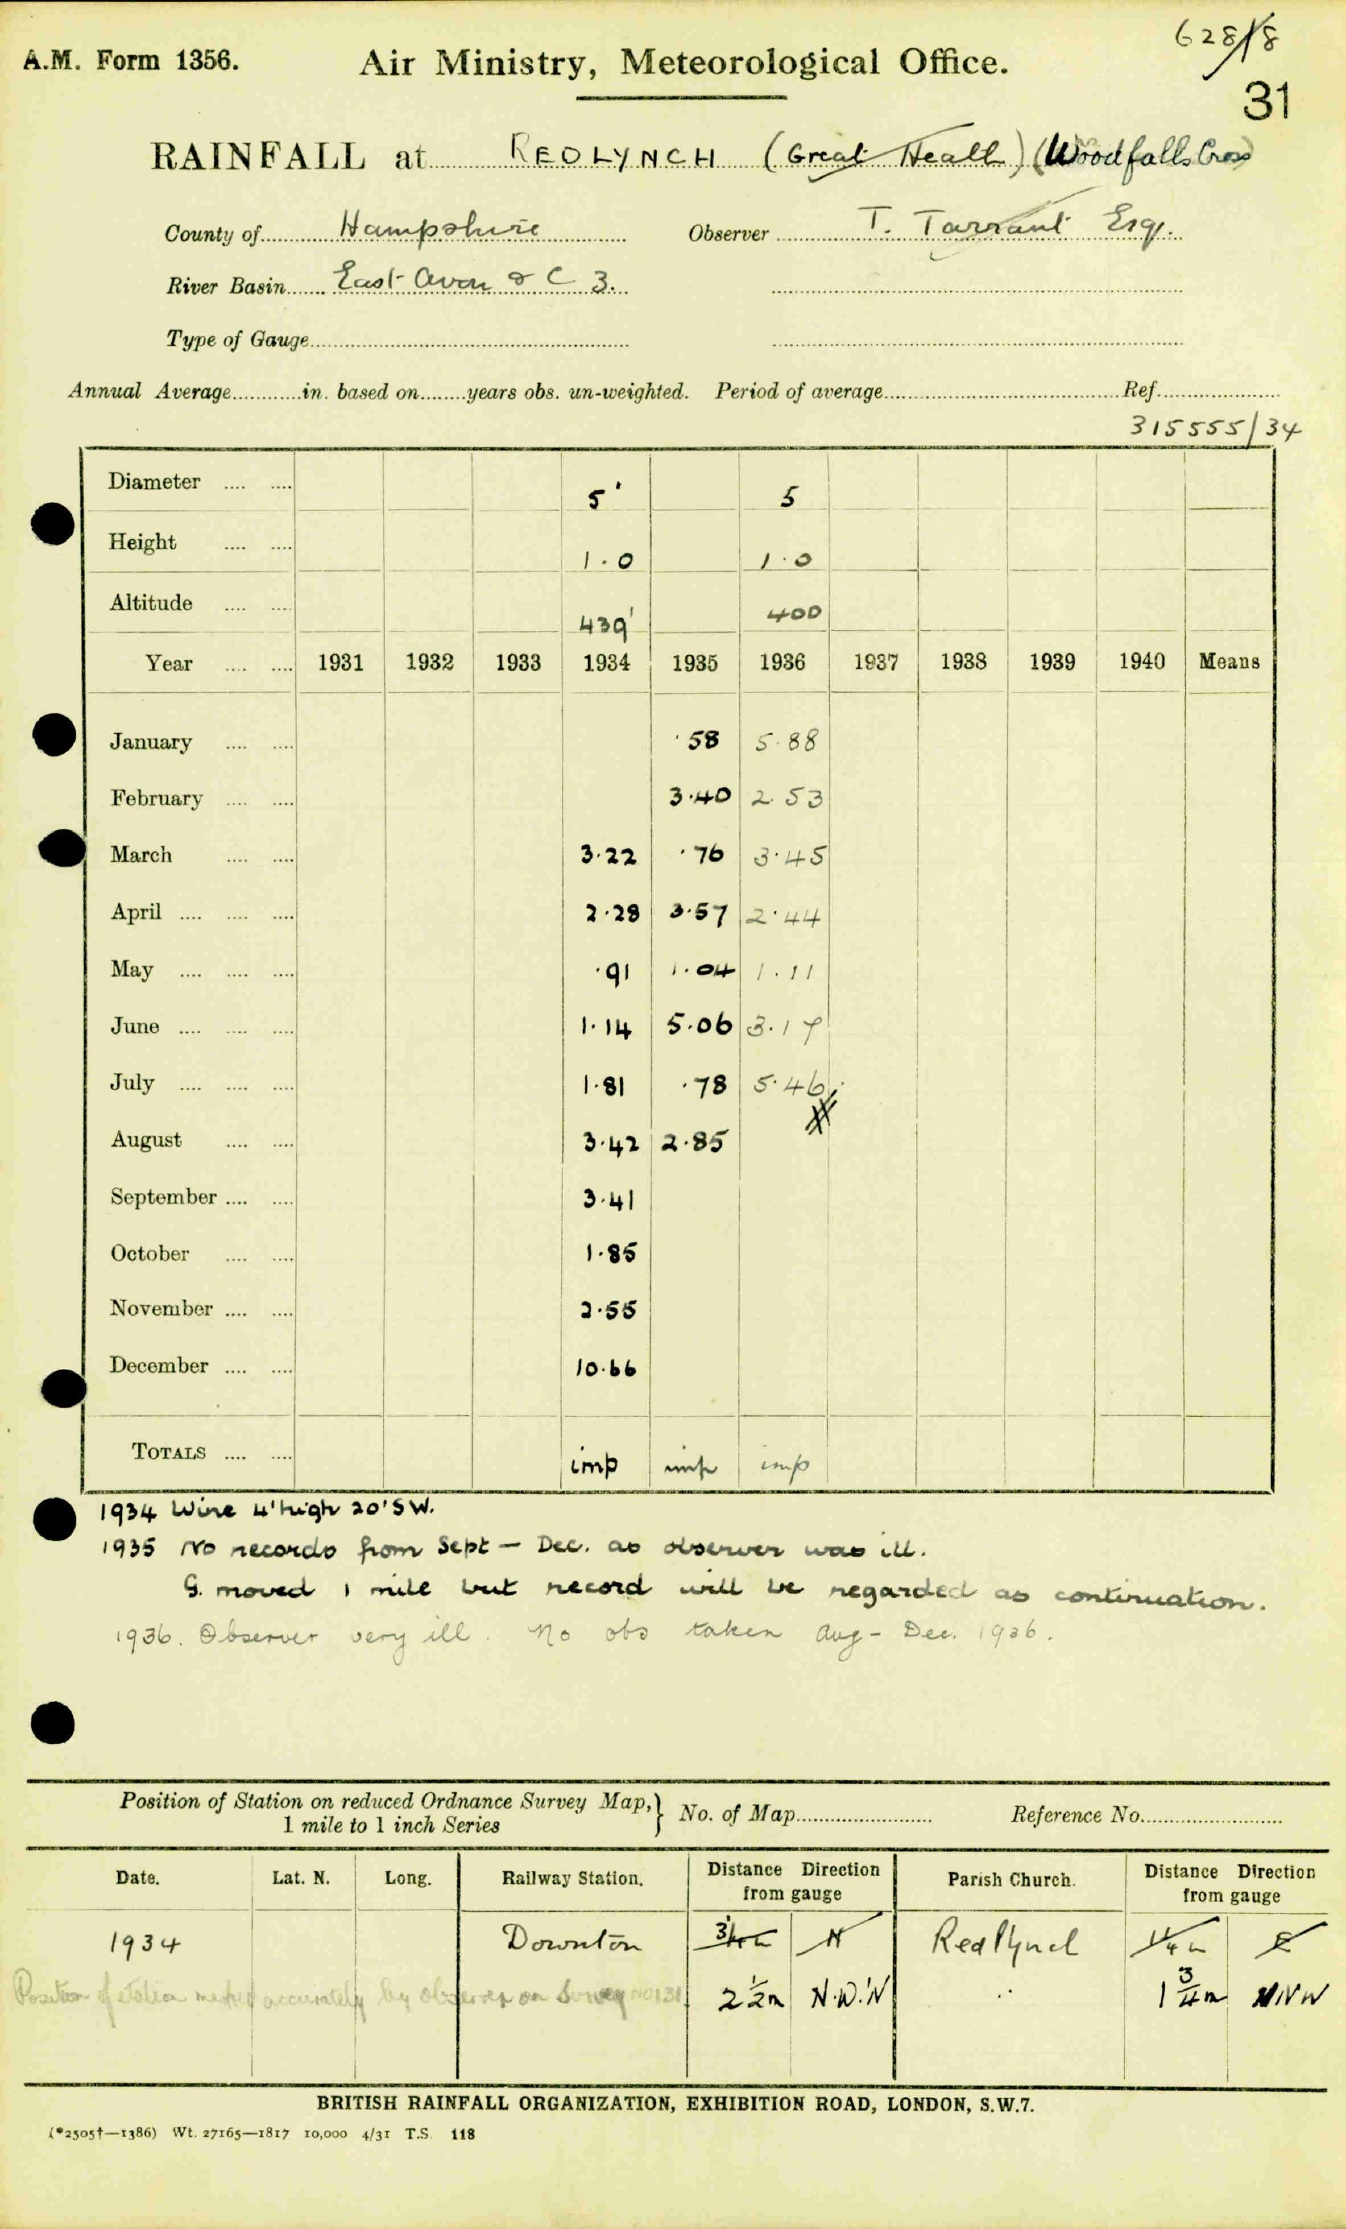 628/18
A.M. Form 1356. Air Ministry, Meteorological Office.
31
RAINFALL at REDLYNCH (Great Heath) (Woodfalls Cross)
County of Hampshire Observer T. Tarrant Esq.
River Basin East Avon & C 3.
Type of Gauge
Annual Average in. based on years obs. un-weighted. Period of average Ref.
315555/34
Diameter 5' 5
Height 1.0 1.0
Altitude 439' 400
Year 1931 1932 1933 1934 1935 1936 1937 1938 1939 1940 Means
January .58 5.88
February 3.40 2.53
March 3.22 .76 3.45
April 2.28 3.57 2.44
May .91 1.04 1.11
June 1.14 5.06 3.17
July 1.81 .78 5.46
August 3.42 2.85
September 3.41
October 1.85
November 2.55
December 10.66
TOTALS imp imp imp
1934 Wire 4' high 20' SW.
1935 No records from Sept - Dec. as observer was ill.
G. moved 1 mile but record will be regarded as continuation.
1936. Observer very ill. No obs taken Aug - Dec. 1936.
Position of Station on reduced Ordnance Survey Map, } No. of Map Reference No.
1 mile to 1 inch Series
Date. Lat. N. Long. Railway Station. Distance Direction from gauge Parish Church. Distance Direction from gauge
1934 Downton N Redlynch 1 1/4 m E
Position of station marked accurately by observer on Survey no 131 2 1/2 m N.W.'N 1 3/4 m NNW
BRITISH RAINFALL ORGANIZATION, EXHIBITION ROAD, LONDON, S.W.7.
(*2505†—1386) Wt. 27165—1817 10,000 4/31 T.S. 118